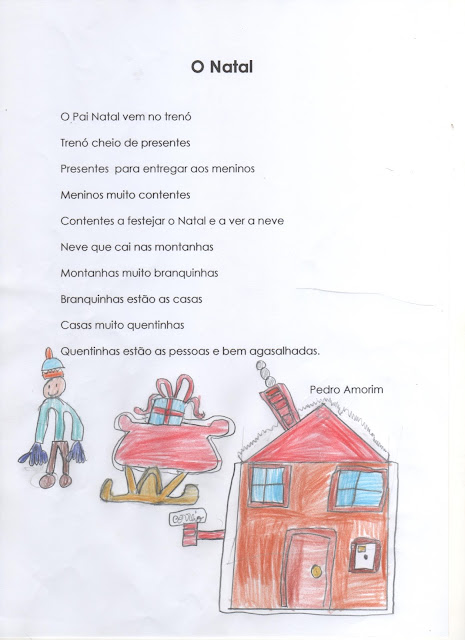 O Natal
O Pai Natal vem no trenó
Trenó cheio de presentes
Presentes para entregar aos meninos
Meninos muito contentes
Contentes a festejar o Natal e a ver a neve
Neve que cai nas montanhas
Montanhas muito branquinhas
Branquinhas estão as casas
Casas muito quentinhas
Quentinhas estão as pessoas e bem agasalhadas.
Pedro Amorim